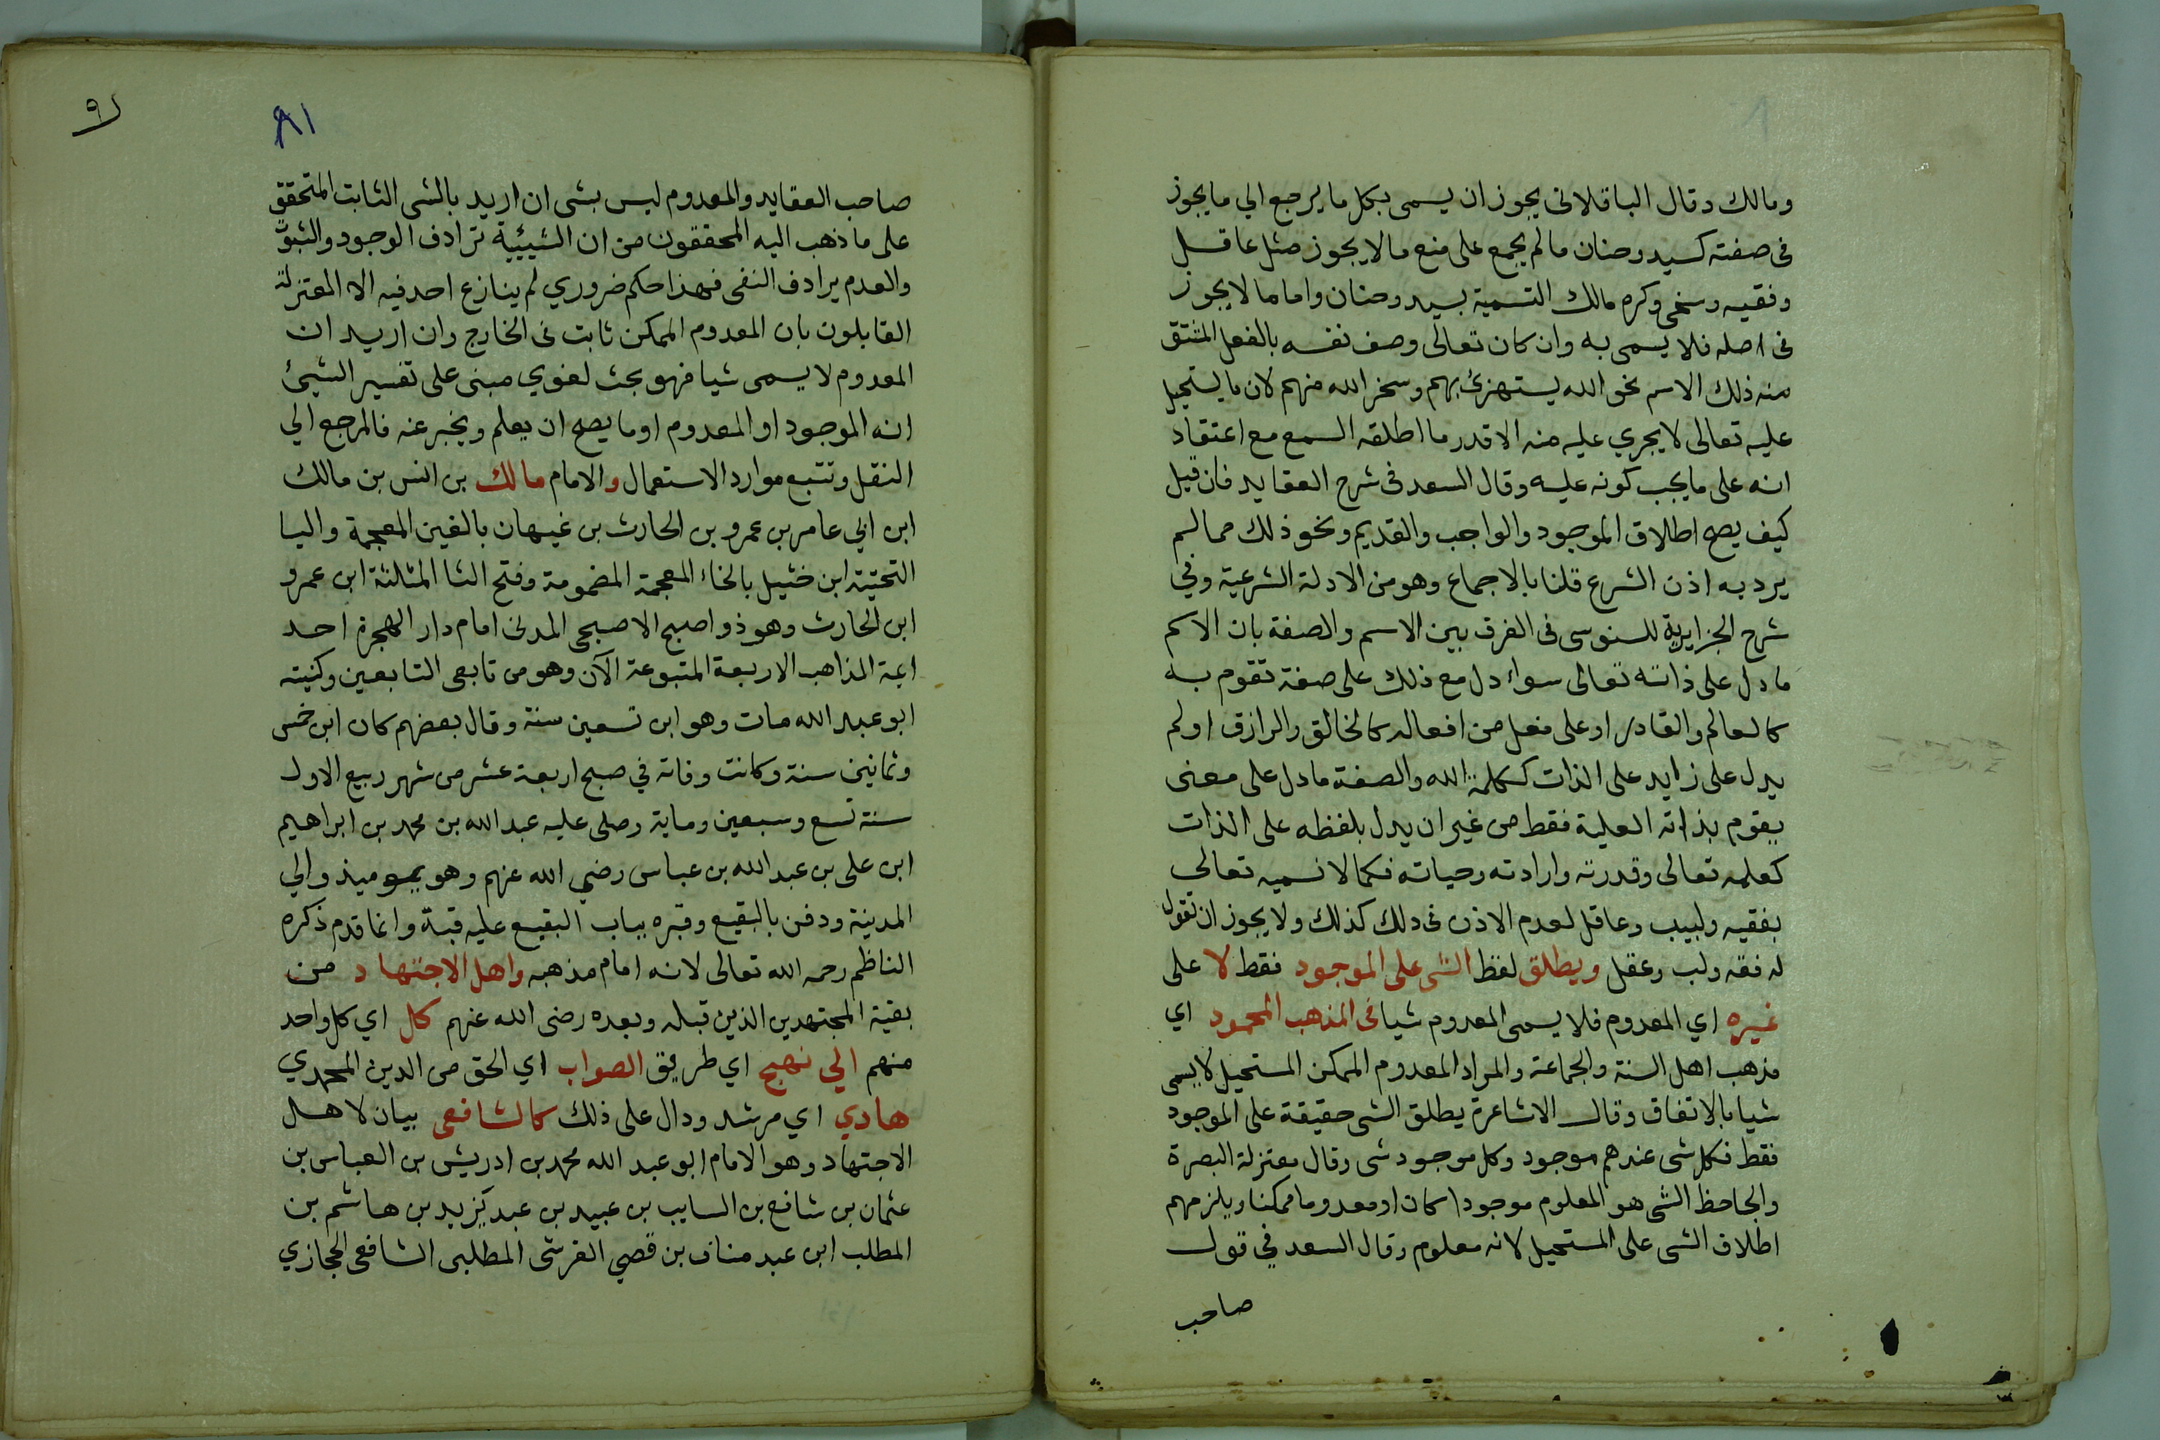 ومالك وقال الباقلاني يجوز ان يسمى بكل ما يرجع الي ما يجوز
في صفته كسيد وحنان مالم يجمع على منع مالا يجوز مثل عاقل
وفقيه وسخي وكره مالك التسمية بسيد وحنان واما ما لا يجوز
في اصله فلا يسمى به وان كان تعالى وصف نفسه بالفعل المشتق
منه ذلك الاسم نحو الله يستهزئ بهم وسخر الله منهم لان ما يستحيل
عليه تعالى لا يجري عليه منه الا قدر ما اطلقه السمع مع اعتقاد
انه على ما يجب كونه عليه وقال السعد في شرح العقايد فان قيل
كيف يصح اطلاق الموجود والواجب والقديم ونحو ذلك مما لم
يرد به اذن الشرع قلنا بالاجماع وهو من الادلة الشرعية وفي
شرح الجزايرية للسنوسى فى الفرق بين الاسم والصفة بان الاسم
ما دل على ذاته تعالى سواء دل مع ذلك على صفة تقوم به
كالعالم والقادر او على فعل من افعاله كالخالق والرازق او لم
يدل على زايد على الذات ككلمة الله والصفة ما دل على معنى
يقوم بذاته العلية فقط من غير ان يدل بلفظه على الذات
كعلمه تعالى وقدرته وارادته وحياته فكما لا نسميه تعالى
بفقيه ولبيب وعاقل لعدم الاذن في ذلك كذلك ولا يجوز ان نقول
له فقه ولب وعقل ويطلق لفظ الشى على الموجود فقط لا على
غيره اي المعدوم فلا يسمى المعدوم شيا في المذهب المحمود اي
مذهب اهل السنة والجماعة والمراد المعدوم الممكن المستحيل لا يسمى
شيا بالاتفاق وقال الاشاعرة يطلق الشى حقيقة على الموجود
فقط فكل شى عندهم موجود وكل موجود شى وقال معتزلة البصرة
والجاحظ الشى هو المعلوم موجودا كان او معدوما ممكنا ويلزمهم
اطلاق الشى على المستحيل لانه معلوم وقال السعد في قول
صاحب
٩
٨١
صاحب العقايد والمعدوم ليس بشى ان اريد بالشى الثابت المتحقق
على ما ذهب اليه المحققون من ان الشيئية ترادف الوجود والثبوت
والعدم يرادف النفى فهذا حكم ضروري لم ينازع احد فيه الا المعتزلة
القايلون بان المعدوم الممكن ثابت فى الخارج وان اريد ان
المعدوم لا يسمى شيا فهو بحث لغوي مبنى على تفسير الشيئ
انه الموجود او المعدوم او ما يصح ان يعلم ويخبر عنه فالمرجع الي
النقل وتتبع موارد الاستعمال والامام مالك بن انس بن مالك
ابن ابي عامر بن عمرو بن الحارث بن غيمان بالغين المعجمة واليا
التحتية ابن خثيل بالخاء المعجمة المضمومة وفتح الثا المثلثة ابن عمرو
ابن الحارث وهو ذو اصبح الاصبحى المدنى امام دار الهجرة احد
ايمة المذاهب الاربعة المتبوعة الآن وهو من تابعى التابعين وكنيته
ابو عبد الله مات وهو ابن تسعين سنة وقال بعضهم كان ابن خمس
وثمانين سنة وكانت وفاته في صبح اربعة عشر من شهر ربيع الاول
سنة تسع وسبعين وماية وصلى عليه عبد الله بن محمد بن ابراهيم
ابن على بن عبد الله بن عباس رضي الله عنهم وهو يوميذ والي
المدينة ودفن بالبقيع وقبره بباب البقيع عليه قبة وانما قدم ذكره
الناظم رحمه الله تعالى لانه امام مذهبه واهل الاجتهاد من
بقية المجتهدين الذين قبله وبعده رضى الله عنهم كل اي كل واحد
منهم الي نهج اي طريق الصواب اي الحق من الدين المحمدي
هادي اي مرشد ودال على ذلك كالشافعى بيان لاهل
الاجتهاد وهو الامام ابو عبد الله محمد بن ادريس بن العباس بن
عثمان بن شافع بن السايب بن عبيد بن عبد يزيد بن هاشم بن
المطلب ابن عبد مناف بن قصي القرشى المطلبى الشافعى الحجازي